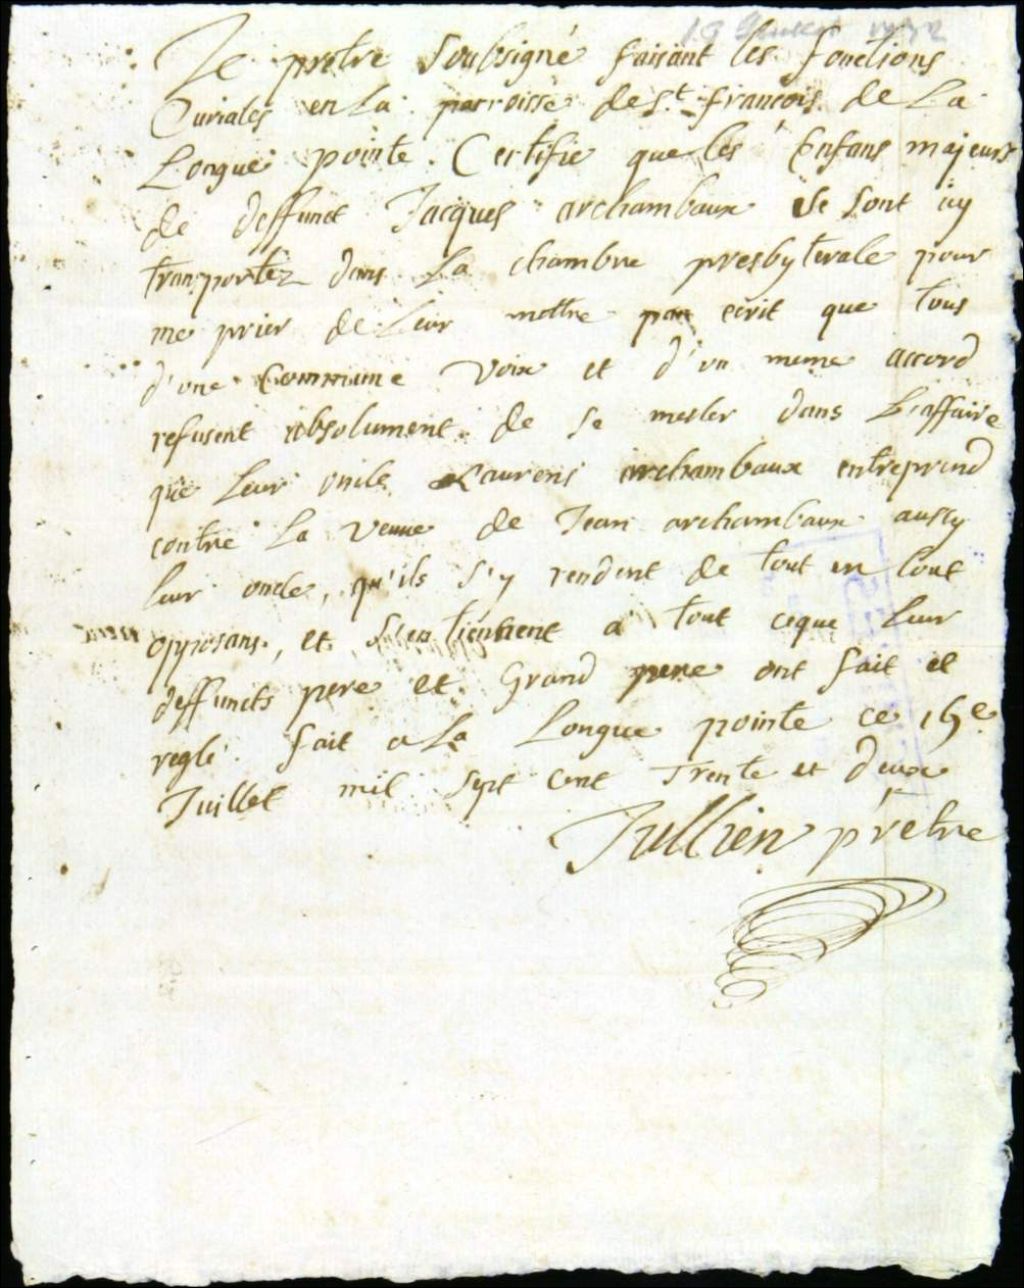 Je prêtre Soubsigné faisant les fonctions
Curiales en La parroisse de St. francois de La
Longue pointe. Certifie que les Enfans majeurs
de deffunct Jacques archambaux se sont icy
transportez dans La chambre presbyterale pour
me prier de Leur mettre par ecrit que tous
d'une Commune Voix et d'un meme accord
refusent absolument de se mesler dans L'affaire
que Leur oncle Laurens archambaux entreprend
contre La Veuve de Jean archambaux aussy
leur oncle, qu'ils s'y rendent de tout en tout
opposans, et s'en tiennent a tout ceque Leur
deffuncts pere et Grand pere ont fait et
reglé. fait a La Longue pointe ce 15e
Juillet mil sept cent Trente et deux
Jullien prêtre